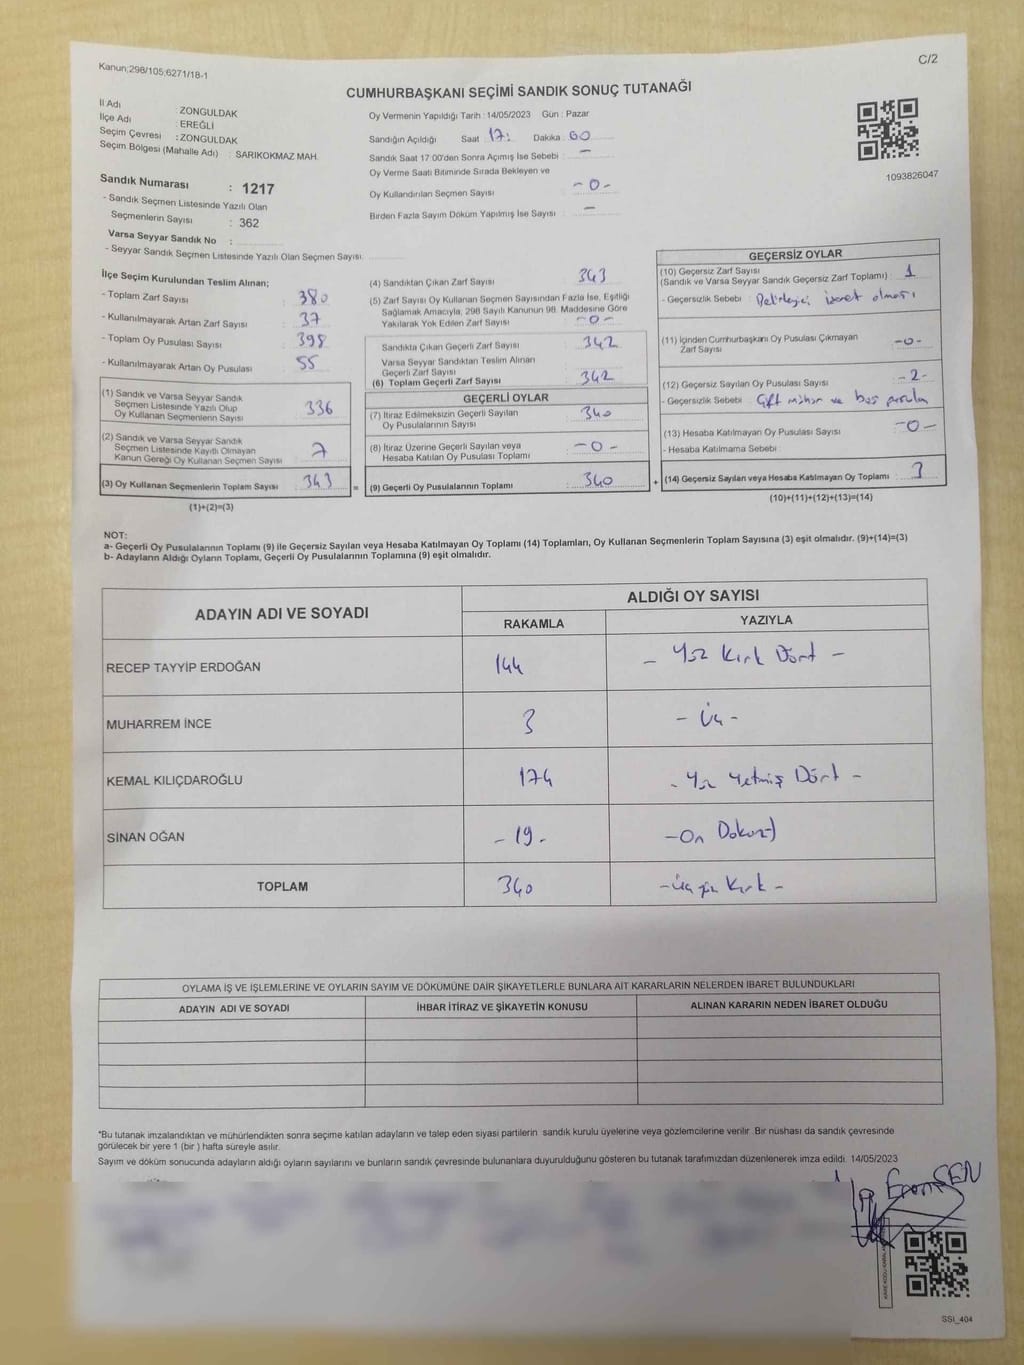 Kanun;298/105;6271/18-1
C/2
CUMHURBAŞKANI SEÇİMİ SANDIK SONUÇ TUTANAĞI
İl Adı : ZONGULDAK
İlçe Adı : EREĞLİ
Seçim Çevresi : ZONGULDAK
Seçim Bölgesi (Mahalle Adı) : SARIKOKMAZ MAH.
Oy Vermenin Yapıldığı Tarih : 14/05/2023 Gün : Pazar
Sandığın Açıldığı Saat 17: Dakika 00
Sandık Saat 17:00'den Sonra Açımış İse Sebebi : —
Oy Verme Saati Bitiminde Sırada Bekleyen ve
Oy Kullandırılan Seçmen Sayısı -0-
Birden Fazla Sayım Döküm Yapılmış İse Sayısı : —
1093826047
Sandık Numarası : 1217
- Sandık Seçmen Listesinde Yazılı Olan
Seçmenlerin Sayısı : 362
Varsa Seyyar Sandık No :
- Seyyar Sandık Seçmen Listesinde Yazılı Olan Seçmen Sayısı:
İlçe Seçim Kurulundan Teslim Alınan;
- Toplam Zarf Sayısı : 380
- Kullanılmayarak Artan Zarf Sayısı : 37
- Toplam Oy Pusulası Sayısı : 398
- Kullanılmayarak Artan Oy Pusulası : 55
(1) Sandık ve Varsa Seyyar Sandık
Seçmen Listesinde Yazılı Olup
Oy Kullanan Seçmenlerin Sayısı : 336
(2) Sandık ve Varsa Seyyar Sandık
Seçmen Listesinde Kayıtlı Olmayan
Kanun Gereği Oy Kullanan Seçmen Sayısı : 7
(3) Oy Kullanan Seçmenlerin Toplam Sayısı : 343
(1)+(2)=(3)
(4) Sandıktan Çıkan Zarf Sayısı : 343
(5) Zarf Sayısı Oy Kullanan Seçmen Sayısından Fazla İse, Eşitliği
Sağlamak Amacıyla, 298 Sayılı Kanunun 98. Maddesine Göre
Yakılarak Yok Edilen Zarf Sayısı : -0-
Sandıkta Çıkan Geçerli Zarf Sayısı : 342
Varsa Seyyar Sandıktan Teslim Alınan
Geçerli Zarf Sayısı
(6) Toplam Geçerli Zarf Sayısı : 342
GEÇERLİ OYLAR
(7) İtiraz Edilmeksizin Geçerli Sayılan
Oy Pusulalarının Sayısı : 340
(8) İtiraz Üzerine Geçerli Sayılan veya
Hesaba Katılan Oy Pusulası Toplamı : -0-
= (9) Geçerli Oy Pusulalarının Toplamı : 340
GEÇERSİZ OYLAR
(10) Geçersiz Zarf Sayısı
(Sandık ve Varsa Seyyar Sandık Geçersiz Zarf Toplamı) : 1
- Geçersizlik Sebebi : Belirleyici işaret olması
(11) İçinden Cumhurbaşkanı Oy Pusulası Çıkmayan
Zarf Sayısı : -0-
(12) Geçersiz Sayılan Oy Pusulası Sayısı : -2-
- Geçersizlik Sebebi : Çift mühür ve boş pusula
(13) Hesaba Katılmayan Oy Pusulası Sayısı : -0-
- Hesaba Katılmama Sebebi :
+ (14) Geçersiz Sayılan veya Hesaba Katılmayan Oy Toplamı : 3
(10)+(11)+(12)+(13)=(14)
NOT:
a- Geçerli Oy Pusulalarının Toplamı (9) ile Geçersiz Sayılan veya Hesaba Katılmayan Oy Toplamı (14) Toplamları, Oy Kullanan Seçmenlerin Toplam Sayısına (3) eşit olmalıdır. (9)+(14)=(3)
b- Adayların Aldığı Oyların Toplamı, Geçerli Oy Pusulalarının Toplamına (9) eşit olmalıdır.
ADAYIN ADI VE SOYADI ALDIĞI OY SAYISI
RAKAMLA YAZIYLA
RECEP TAYYİP ERDOĞAN 144 - Yüz Kırk Dört -
MUHARREM İNCE 3 - Üç -
KEMAL KILIÇDAROĞLU 174 - Yüz Yetmiş Dört -
SİNAN OĞAN - 19 - - On Dokuz -
TOPLAM 340 - Üç yüz Kırk -
OYLAMA İŞ VE İŞLEMLERİNE VE OYLARIN SAYIM VE DÖKÜMÜNE DAİR ŞİKAYETLERLE BUNLARA AİT KARARLARIN NELERDEN İBARET BULUNDUKLARI
ADAYIN ADI VE SOYADI İHBAR İTİRAZ VE ŞİKAYETİN KONUSU ALINAN KARARIN NEDEN İBARET OLDUĞU
*Bu tutanak imzalandıktan ve mühürlendikten sonra seçime katılan adayların ve talep eden siyasi partilerin sandık kurulu üyelerine veya gözlemcilerine verilir. Bir nüshası da sandık çevresinde
görülecek bir yere 1 (bir) hafta süreyle asılır.
Sayım ve döküm sonucunda adayların aldığı oyların sayılarını ve bunların sandık çevresinde bulunanlara duyurulduğunu gösteren bu tutanak tarafımızdan düzenlenerek imza edildi. 14/05/2023
ŞEN
SSI_404